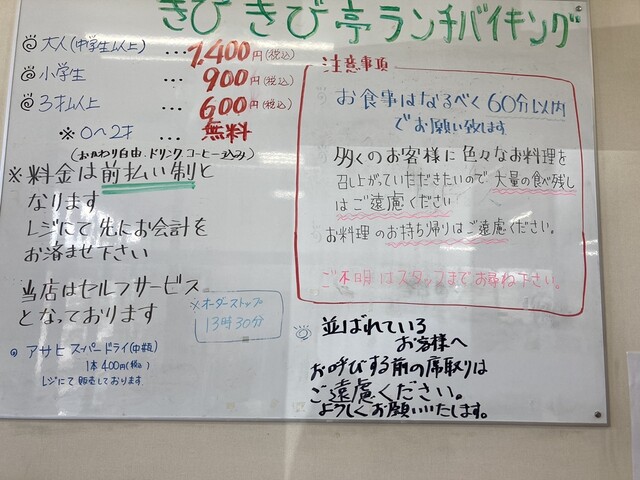 きびきび亭ランチバイキング
◎大人(中学生以上) …1,400円(税込)
◎小学生 … 900円(税込)
◎3才以上 … 600円(税込)
※0〜2才 … 無料
(おかわり自由、ドリンク、コーヒー込み)
※料金は前払い制と
なります
レジにて先にお会計を
お済ませ下さい
当店はセルフサービス
となっております
※オーダーストップ
13時30分
◎アサヒスーパードライ(中瓶)
1本400円(税込)
レジにて販売しております
注意事項
お食事はなるべく60分以内
でお願い致します
多くのお客様に色々なお料理を
召し上がっていただきたいので大量の食べ残し
はご遠慮ください
お料理のお持ち帰りはご遠慮ください。
ご不明はスタッフまでお尋ね下さい。
◎並ばれている
お客様へ
お呼びする前の席取りは
ご遠慮ください。
よろしくお願いいたします。